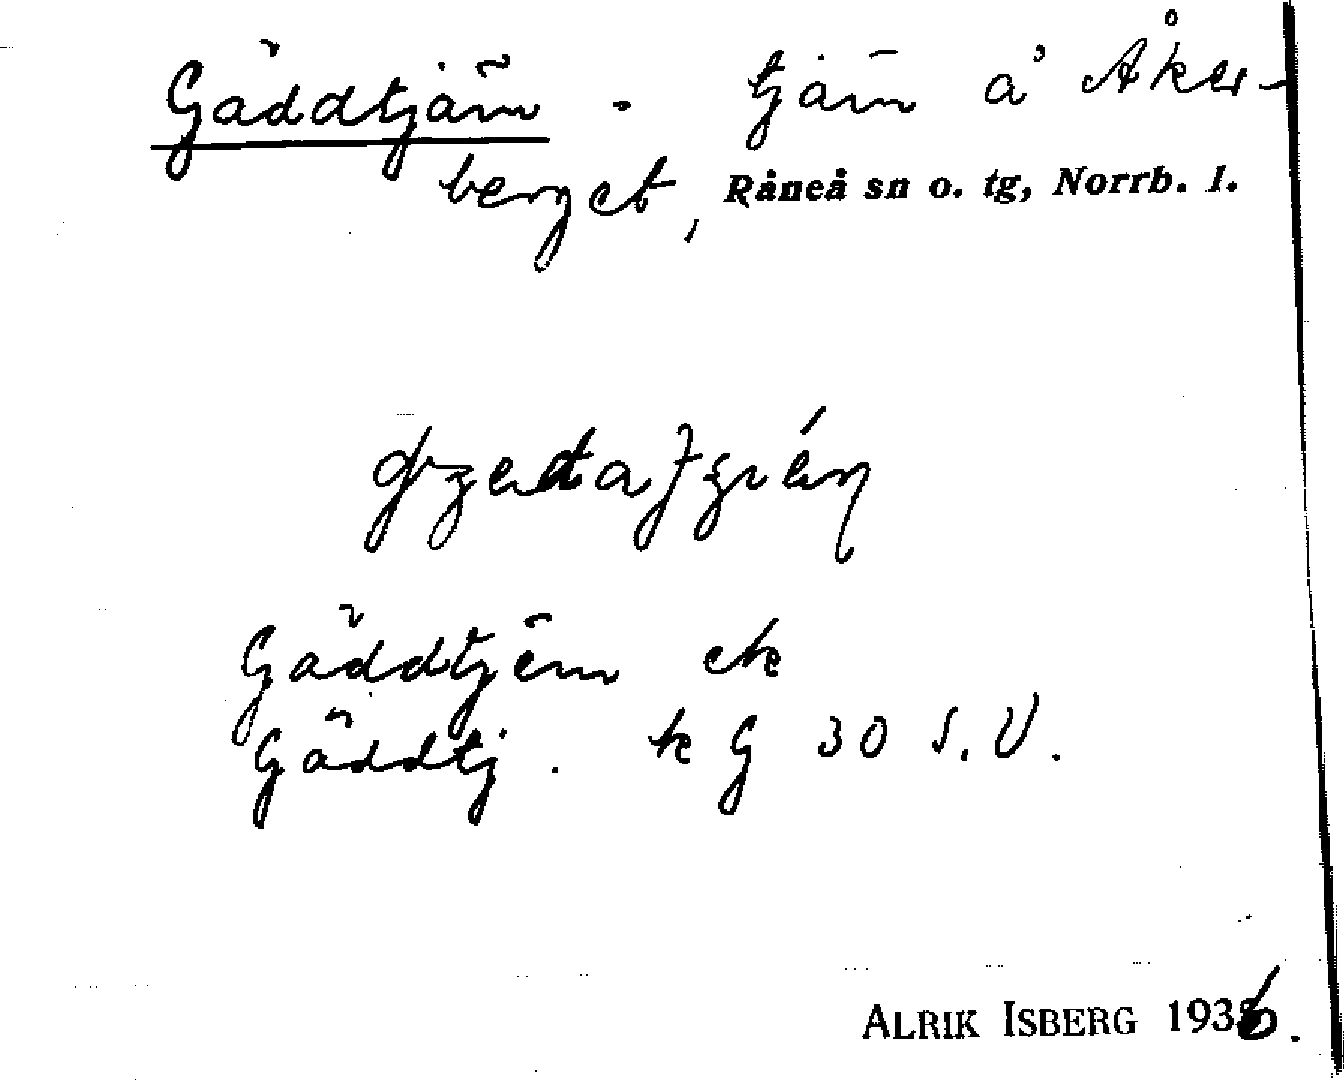 Gäddtjärn . tjärn å Åker-
berget, Råneå sn o. tg, Norrb. l.
Gäddtjärn ek
Gäddtj. k G 30 S.V.
ALRIK ISBERG 1936.